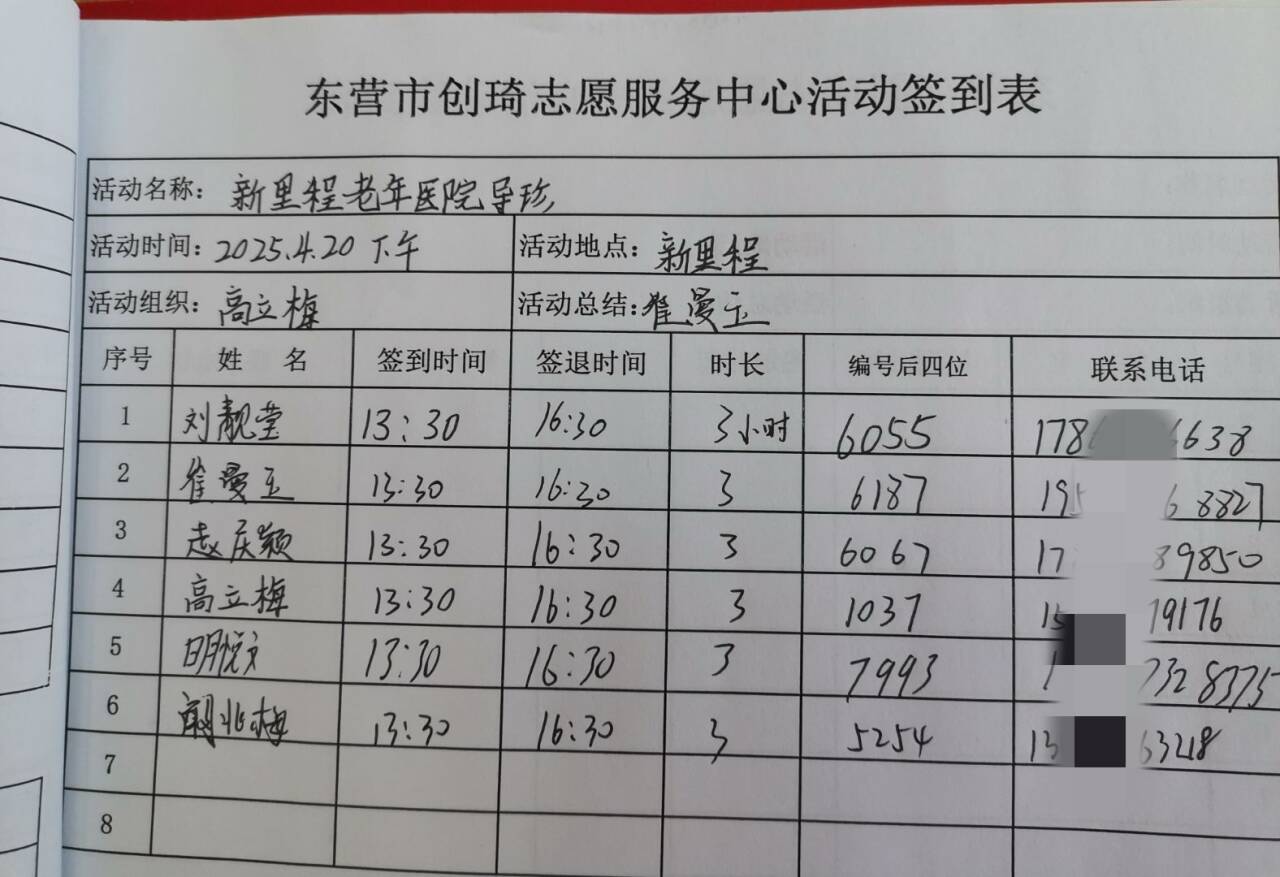 东营市创琦志愿服务中心活动签到表
活动名称: 新里程老年医院导珍
活动时间: 2025.4.20 下午 活动地点: 新里程
活动组织: 高立梅 活动总结: 崔曼玉
序号 姓 名 签到时间 签退时间 时长 编号后四位 联系电话
1 刘靓莹 13:30 16:30 3小时 6055 178 6638
2 崔曼玉 13:30 16:30 3 6187 195 6 8827
3 赵庆颖 13:30 16:30 3 6067 17 89850
4 高立梅 13:30 16:30 3 1037 15 79176
5 明悦文 13:30 16:30 3 7993 1 7328375
6 13:30 16:30 3 5254 13 63218
7
8